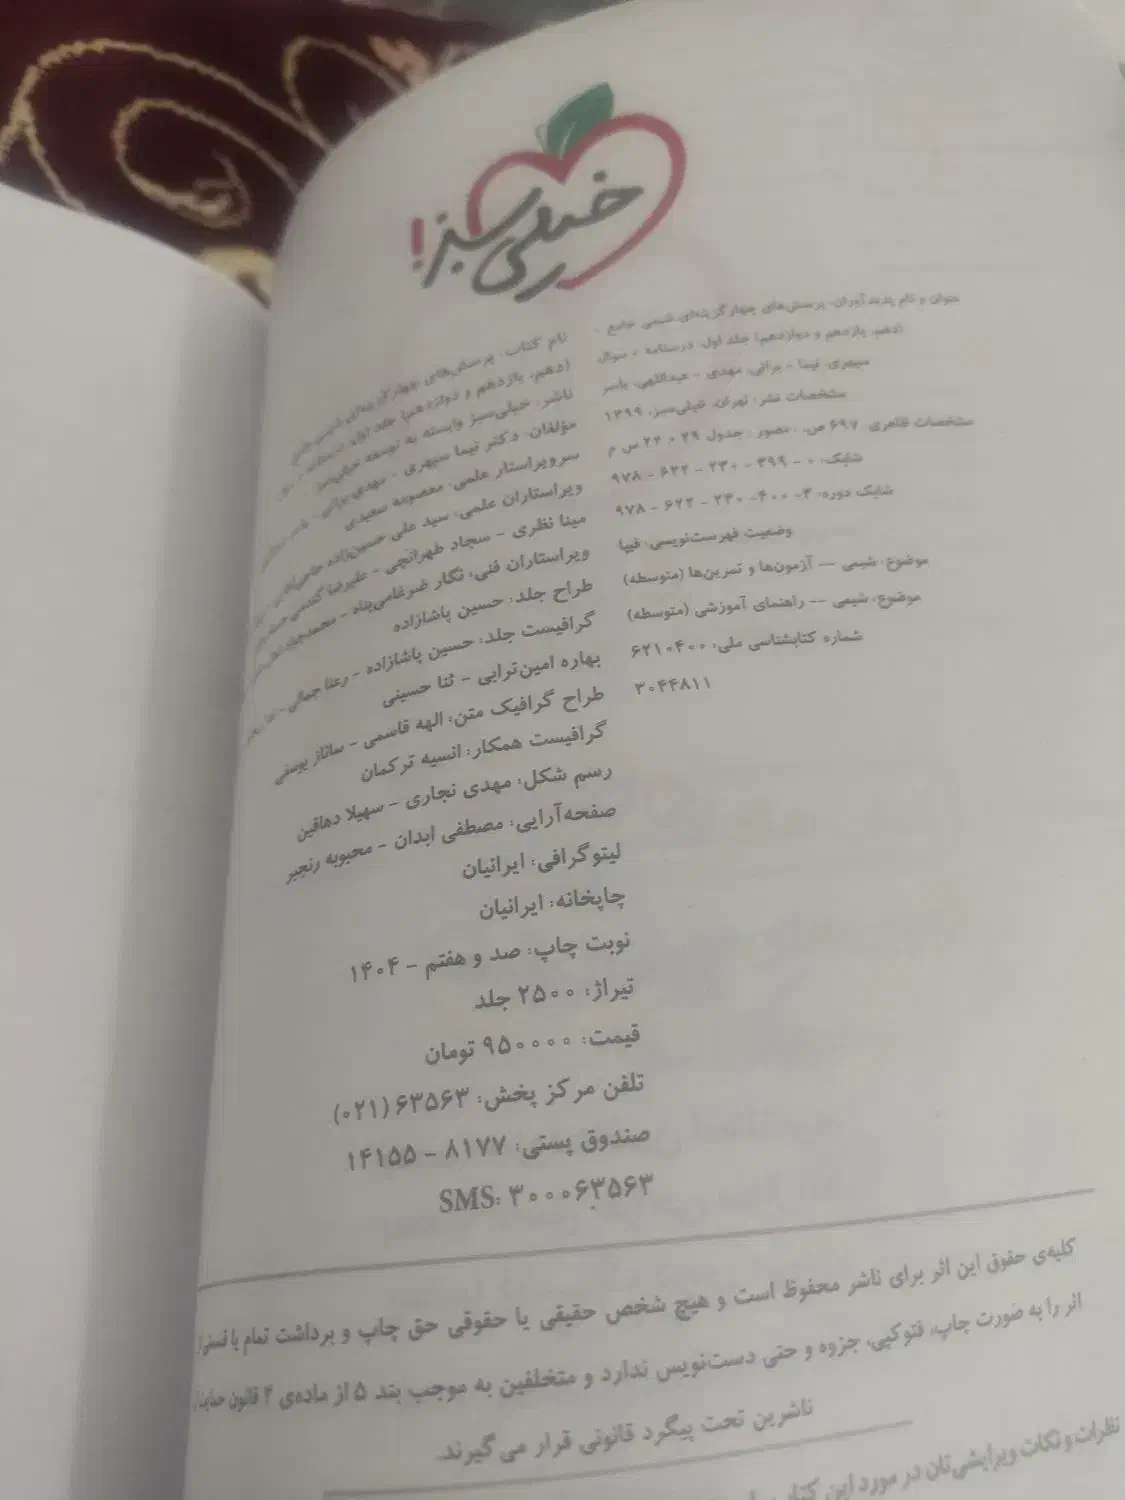 خیلی سبز!
عنوان و نام پدیدآوران: پرسش‌های چهارگزینه‌ای شیمی جامع -
(دهم، یازدهم و دوازدهم) جلد اول: درسنامه + سوال
سپهری، نیما - براتی، مهدی - عبداللهی، یاسر
مشخصات نشر: تهران، خیلی‌سبز، ۱۳۹۹
مشخصات ظاهری: ۶۹۷ ص.، مصور، جدول ۲۹ × ۲۲ س م
شابک: ۰ - ۳۹۹ - ۲۳۰ - ۶۲۲ - ۹۷۸
شابک دوره: ۳ - ۴۰۰ - ۲۳۰ - ۶۲۲ - ۹۷۸
وضعیت فهرست‌نویسی: فیپا
موضوع: شیمی -- آزمون‌ها و تمرین‌ها (متوسطه)
موضوع: شیمی -- راهنمای آموزشی (متوسطه)
شماره کتابشناسی ملی: ۶۲۱۰۴۰۰
۳۰۴۴۸۱۱
نام کتاب: پرسش‌های چهارگزینه‌ای شیمی جامع
(دهم، یازدهم و دوازدهم) جلد اول: درسنامه +
ناشر: خیلی‌سبز وابسته به توسعه خیلی‌سبز
مؤلفان: دکتر نیما سپهری - مهدی براتی -
سرویراستار علمی: معصومه سعیدی
ویراستاران علمی: سید علی حسین‌زاده
مینا نظری - سجاد طهرانچی - علیرضا
ویراستاران فنی: نگار ضرغامی‌پناه -
طراح جلد: حسین پاشازاده
گرافیست جلد: حسین پاشازاده - رعنا جمالی -
بهاره امین‌ترابی - ثنا حسینی
طراح گرافیک متن: الهه قاسمی - ساناز یوسفی
گرافیست همکار: انسیه ترکمان
رسم شکل: مهدی نجاری - سهیلا دهاقین
صفحه‌آرایی: مصطفی ابدان - محبوبه رنجبر
لیتوگرافی: ایرانیان
چاپخانه: ایرانیان
نوبت چاپ: صد و هفتم - ۱۴۰۴
تیراژ: ۲۵۰۰ جلد
قیمت: ۹۵۰۰۰۰ تومان
تلفن مرکز پخش: ۶۳۵۶۳ (۰۲۱)
صندوق پستی: ۸۱۷۷ - ۱۴۱۵۵
SMS: ۳۰۰۰۶۳۵۶۳
کلیه‌ی حقوق این اثر برای ناشر محفوظ است و هیچ شخص حقیقی یا حقوقی حق چاپ و برداشت تمام یا قسمتی
اثر را به صورت چاپ، فتوکپی، جزوه و حتی دست‌نویس ندارد و متخلفین به موجب بند ۵ از ماده‌ی ۲ قانون حمایت
ناشرین تحت پیگرد قانونی قرار می‌گیرند.
نظرات و نکات ویرایشی‌تان در مورد این کتاب